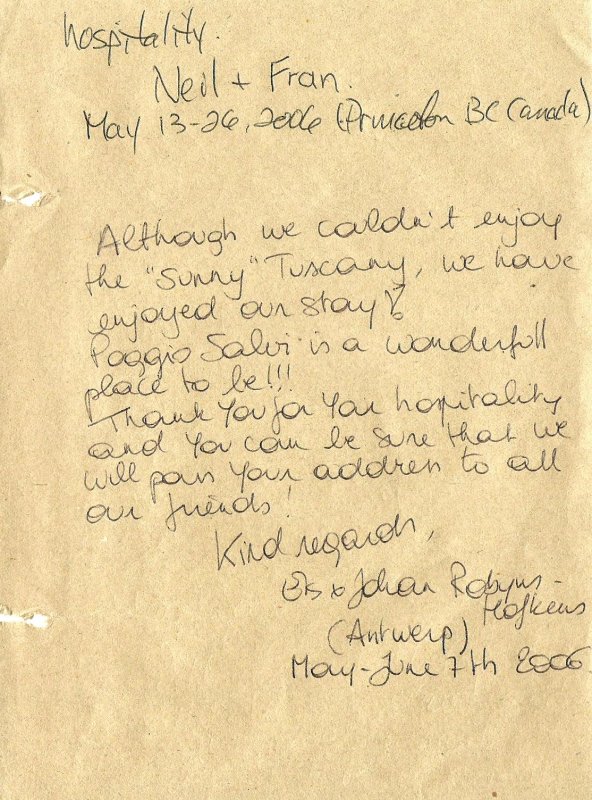 hospitality.
Neil + Fran.
May 13-26, 2006 (Princeton BC Canada)
Although we couldn't enjoy
the "sunny" Tuscany, we have
enjoyed our stay!
Poggio Salvi is a wonderfull
place to be!!!
Thank you for your hospitality
and you can be sure that we
will pass your address to all
our friends!
Kind regards,
Els & Johan Robyns-
Hofkens
(Antwerp)
May-June 7th 2006.